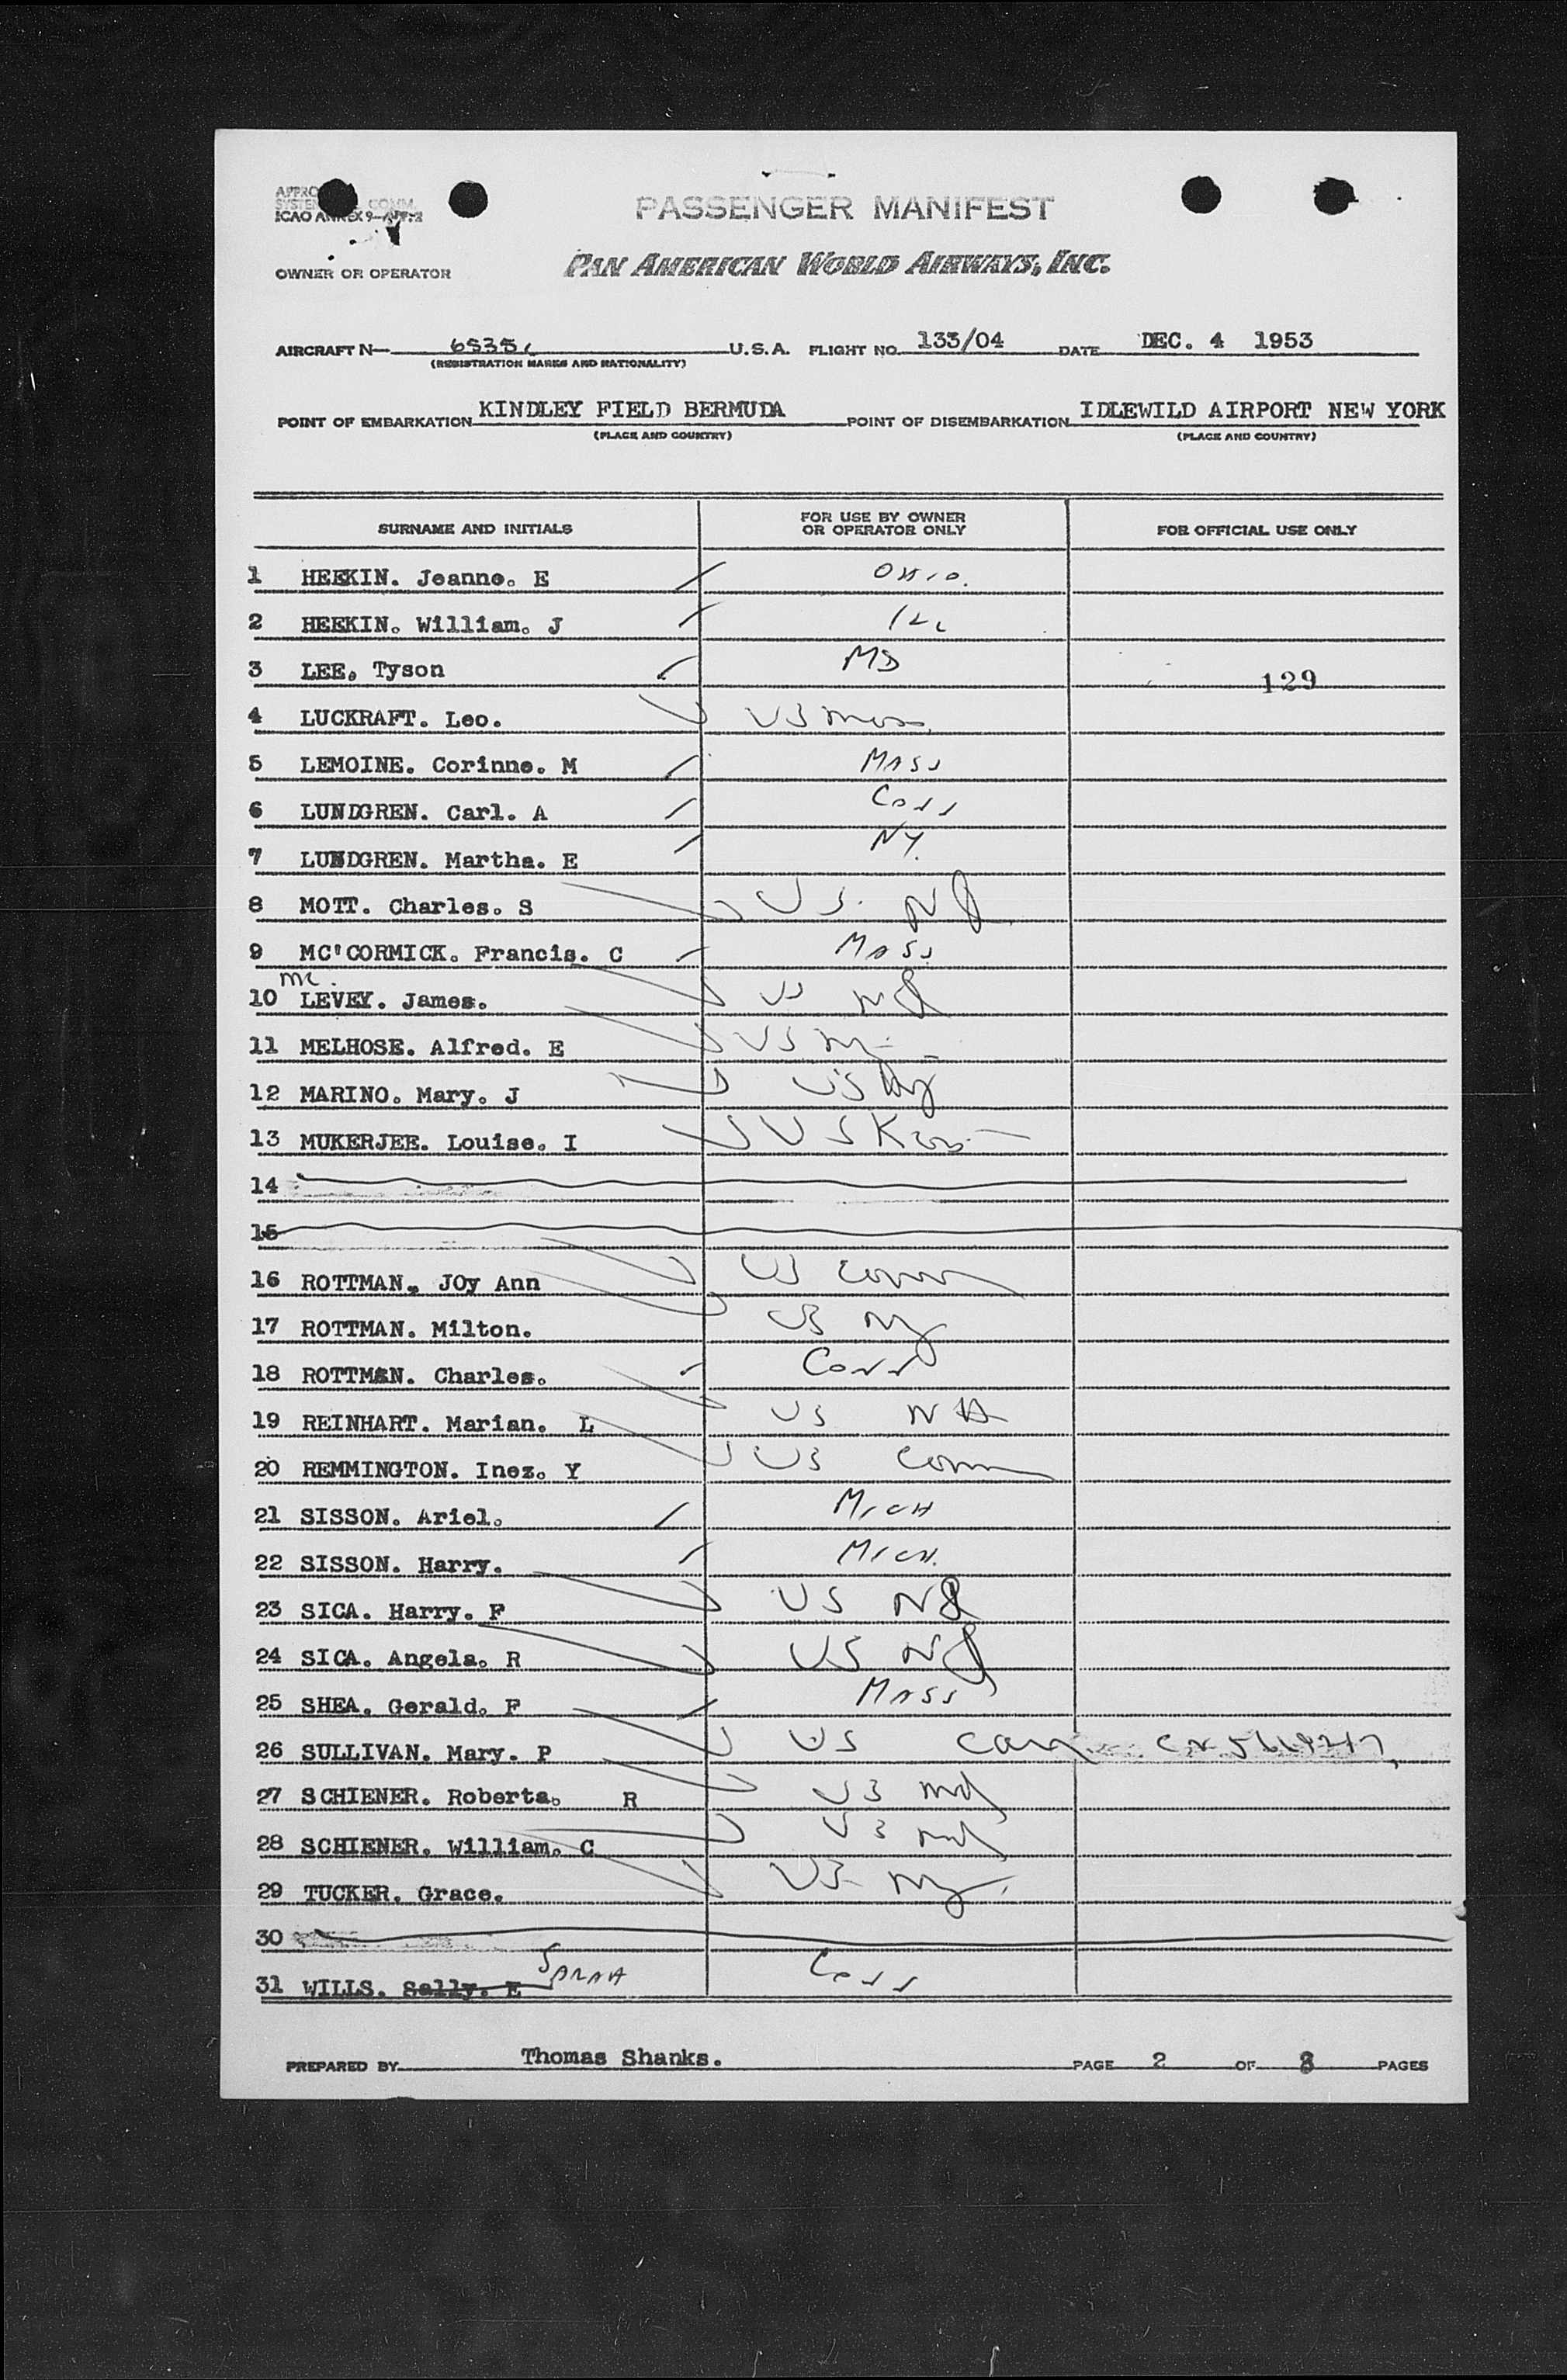 PASSENGER MANIFEST
ICAO ANNEX 9
OWNER OR OPERATOR
PAN AMERICAN WORLD AIRWAYS, INC.
AIRCRAFT N— U.S.A. FLIGHT NO. 133/04 DATE DEC. 4 1953
(REGISTRATION MARKS AND NATIONALITY)
POINT OF EMBARKATION KINDLEY FIELD BERMUDA POINT OF DISEMBARKATION IDLEWILD AIRPORT NEW YORK
(PLACE AND COUNTRY) (PLACE AND COUNTRY)
SURNAME AND INITIALS FOR USE BY OWNER OR OPERATOR ONLY FOR OFFICIAL USE ONLY
1 HEEKIN. Jeanne. E OHIO.
2 HEEKIN. William. J ILL
3 LEE. Tyson MD 129
4 LUCKRAFT. Leo. US Mass
5 LEMOINE. Corinne. M MASS
6 LUNDGREN. Carl. A CONN
7 LUNDGREN. Martha. E NY.
8 MOTT. Charles. S US. NJ
9 MC'CORMICK. Francis. C MASS.
10 Mc. LEVEY. James. US NJ
11 MELHOSE. Alfred. E US Ny
12 MARINO. Mary. J US Ny
13 MUKERJEE. Louise. I US Kans
14
15
16 ROTTMAN. JOy Ann US Conn
17 ROTTMAN. Milton. US Ny
18 ROTTMAN. Charles. CONN
19 REINHART. Marian. L US
20 REMMINGTON. Inez. Y US Conn
21 SISSON. Ariel. MICH
22 SISSON. Harry. MICH.
23 SICA. Harry. F US NJ
24 SICA. Angela. R US NJ
25 SHEA. Gerald. F MASS
26 SULLIVAN. Mary. P US
27 SCHIENER. Roberta. R US Md
28 SCHIENER. William. C US Md
29 TUCKER. Grace. US Ny.
30
31 WILLS. Sally. E SARAH CONN
PREPARED BY Thomas Shanks. PAGE 2 OF PAGES